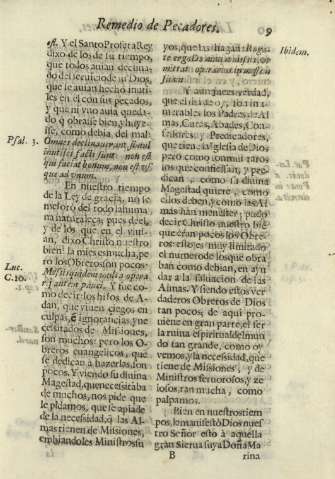 Remedio de Pecadores. 9
est. Y el Santo Profeta Rey
dixo de los de su tiempo,
que todos auian declina-
do del seruicio de su Dios,
que le auian hecho inuti-
les en èl con sus pecados,
y que ni vno auia queda-
do q̃ obrasse bien, y huyes-
se, como debia, del mal:
Psal. 3.
Omnes declinauerunt, simul
inutiles facti sunt: non est
qui faciat bonum, non est vs-
que ad vnum.
En nuestro tiempo
de la Ley de gracia, no se
mejorò del todo la huma-
na naturaleza; pues dèl,
y de los que en èl viuian,
dixo Christo nuestro
bien: La mies es mucha, pe-
ro los Obreros son pocos:
Luc. C. 10.
Messis quidem multa, opera-
rij autem pauci. Y fue co-
mo decir: los hijos de A-
dan, que viuen ciegos en
culpas, è ignorancias, y ne-
cessitados de Missiones,
son muchos: pero los O-
breros euangelicos, que
se dedican à hazerlas, son
pocos. Y viendo su diuina
Magestad, que necessitaba
de muchos, nos pide que
le pidamos, que se apiade
de la necessidad, q̃ las Al-
mas tienen de Missiones,
embiandoles Ministros su-
yos, que las hagan: Roga-
Ibidem.
te ergo Dominum messis, vt
mittat operarios in messem
suam.
Y aunque es verdad,
Padres de Al-
mas, Curas, Abades, Con-
fessores, y Predicadores,
que tiene la Iglesia de Dios
pero como son mui raros
los que confiessan, y pre-
dican como su diuina
Magestad quiere, como
ellos deben, y como las Al-
mas han menester; pudo
decir Christo nuestro bien
que eran pocos los Obre-
ros: esto es, muy limitado
el numero de los que obra-
ban como debian, en ayu-
dar à la saluacion de las
Almas. Y siendo estos ver-
daderos Obreros de Dios
tan pocos; de aqui pro-
uiene en gran parte, el ser
la ruina espiritual del mun-
do tan grande, como oy
vemos, y la necessidad, que
tiene de Missiones, y de
Ministros feruorosos, y ze-
losos, tan mucha, como
palpamos.
Bien en nuestros tiem-
pos, lo manifestò Dios nues-
tro Señor esto à aquella
gran Sierua suya Doña Ma-
B
rina